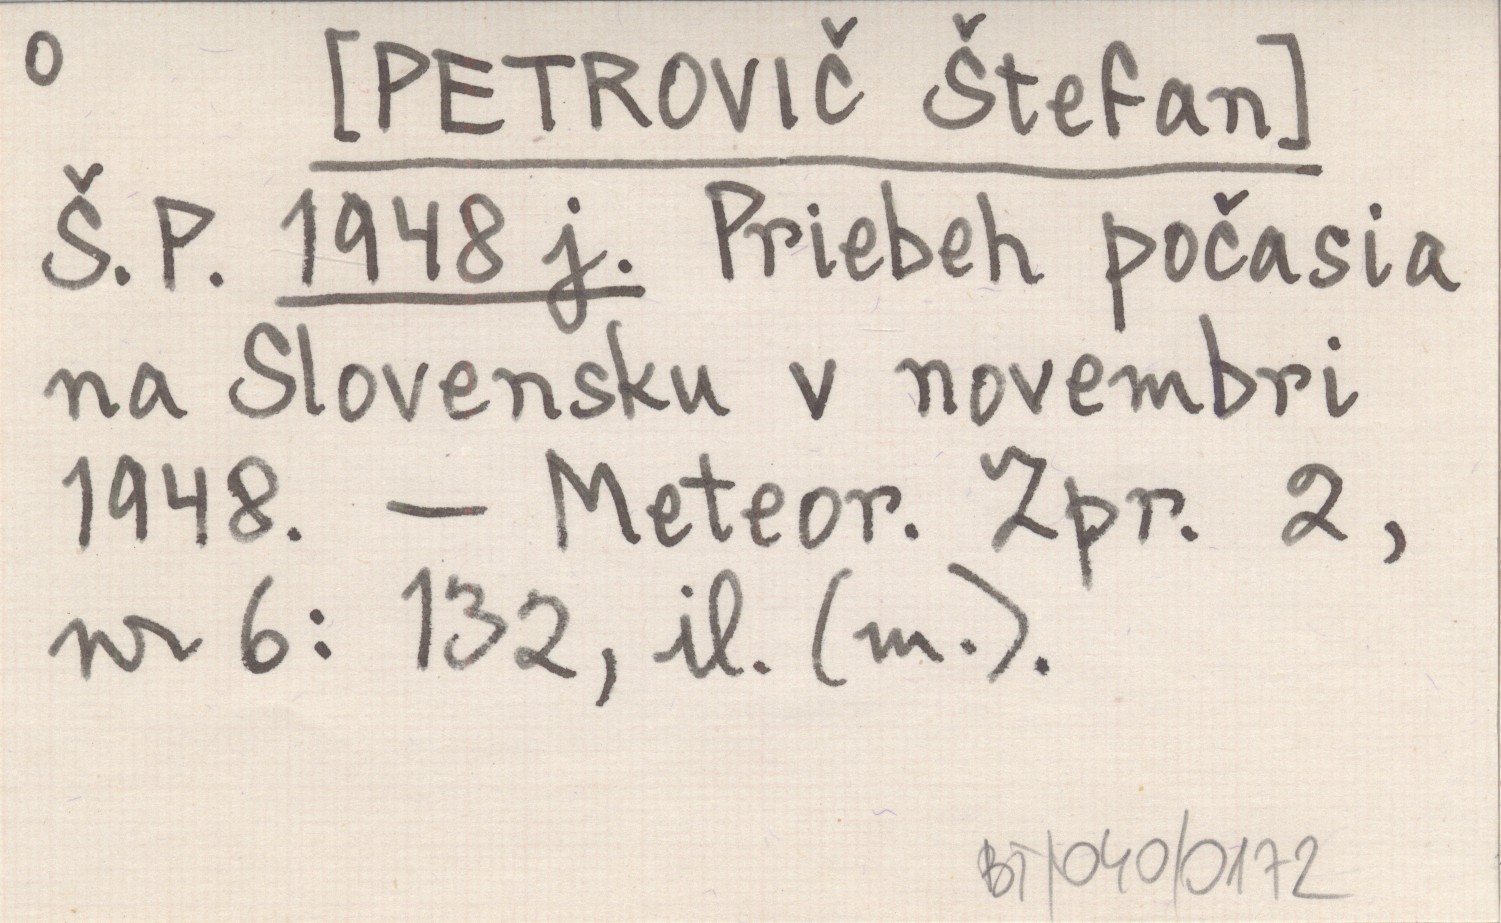 o [PETROVIČ Štefan]
Š.P. 1948 j. Priebeh počasia
na Slovensku v novembri
1948. — Meteor. Zpr. 2,
nr 6: 132, il. (m.).
BT/040/0172